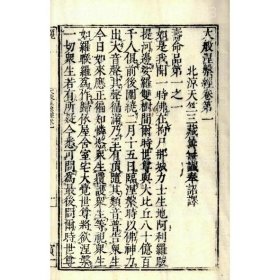 大般涅槃經卷第一
北涼天竺三藏曇無讖奉詔譯
壽命品第一之一
如是我聞一時佛在拘尸那城力士生地阿利羅跋
提河邊娑羅雙樹間爾時世尊與大比丘八十億百
千人俱前後圍繞二月十五日臨涅槃時以佛神力
出大音聲其聲徧滿乃至有頂隨其類音普告衆生
今日如來應正徧知憐愍衆生覆護衆生等視衆生
如羅睺羅爲作歸依屋舍室宅大覺世尊將欲涅槃
一切衆生若有所疑今悉可問爲最後問爾時世尊